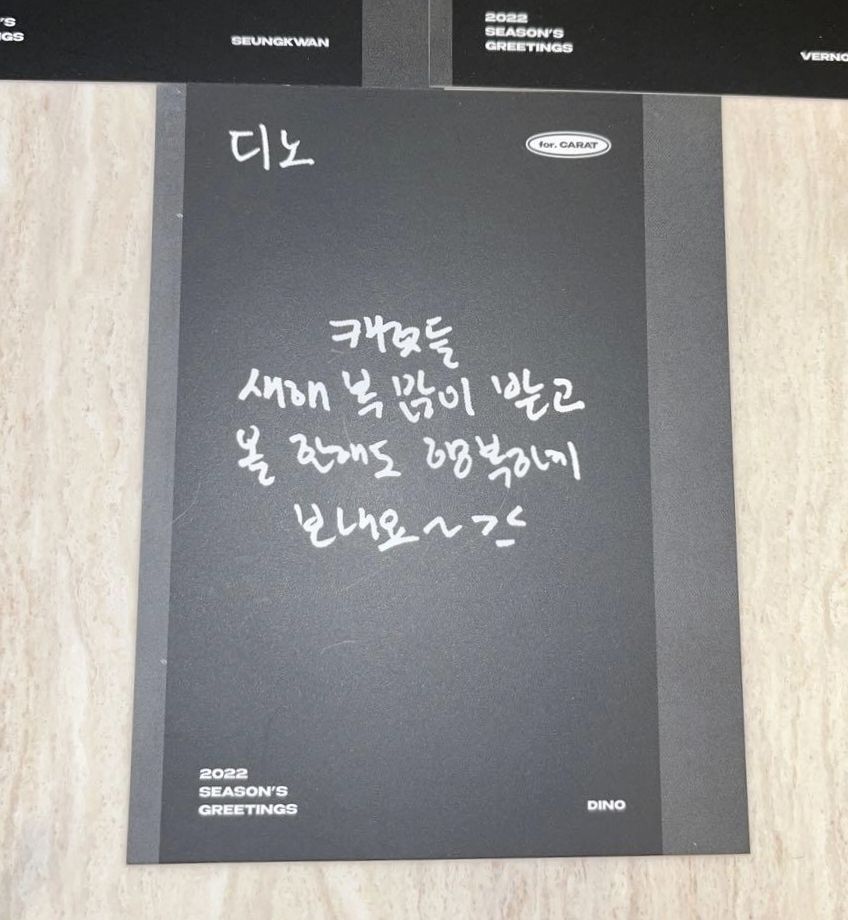 'S
GS
SEUNGKWAN
2022
SEASON'S
GREETINGS
VERNO
디노
for. CARAT
캐럿들
새해 복 많이 받고
올 한해도 행복하게
보내요~
2022
SEASON'S
GREETINGS
DINO